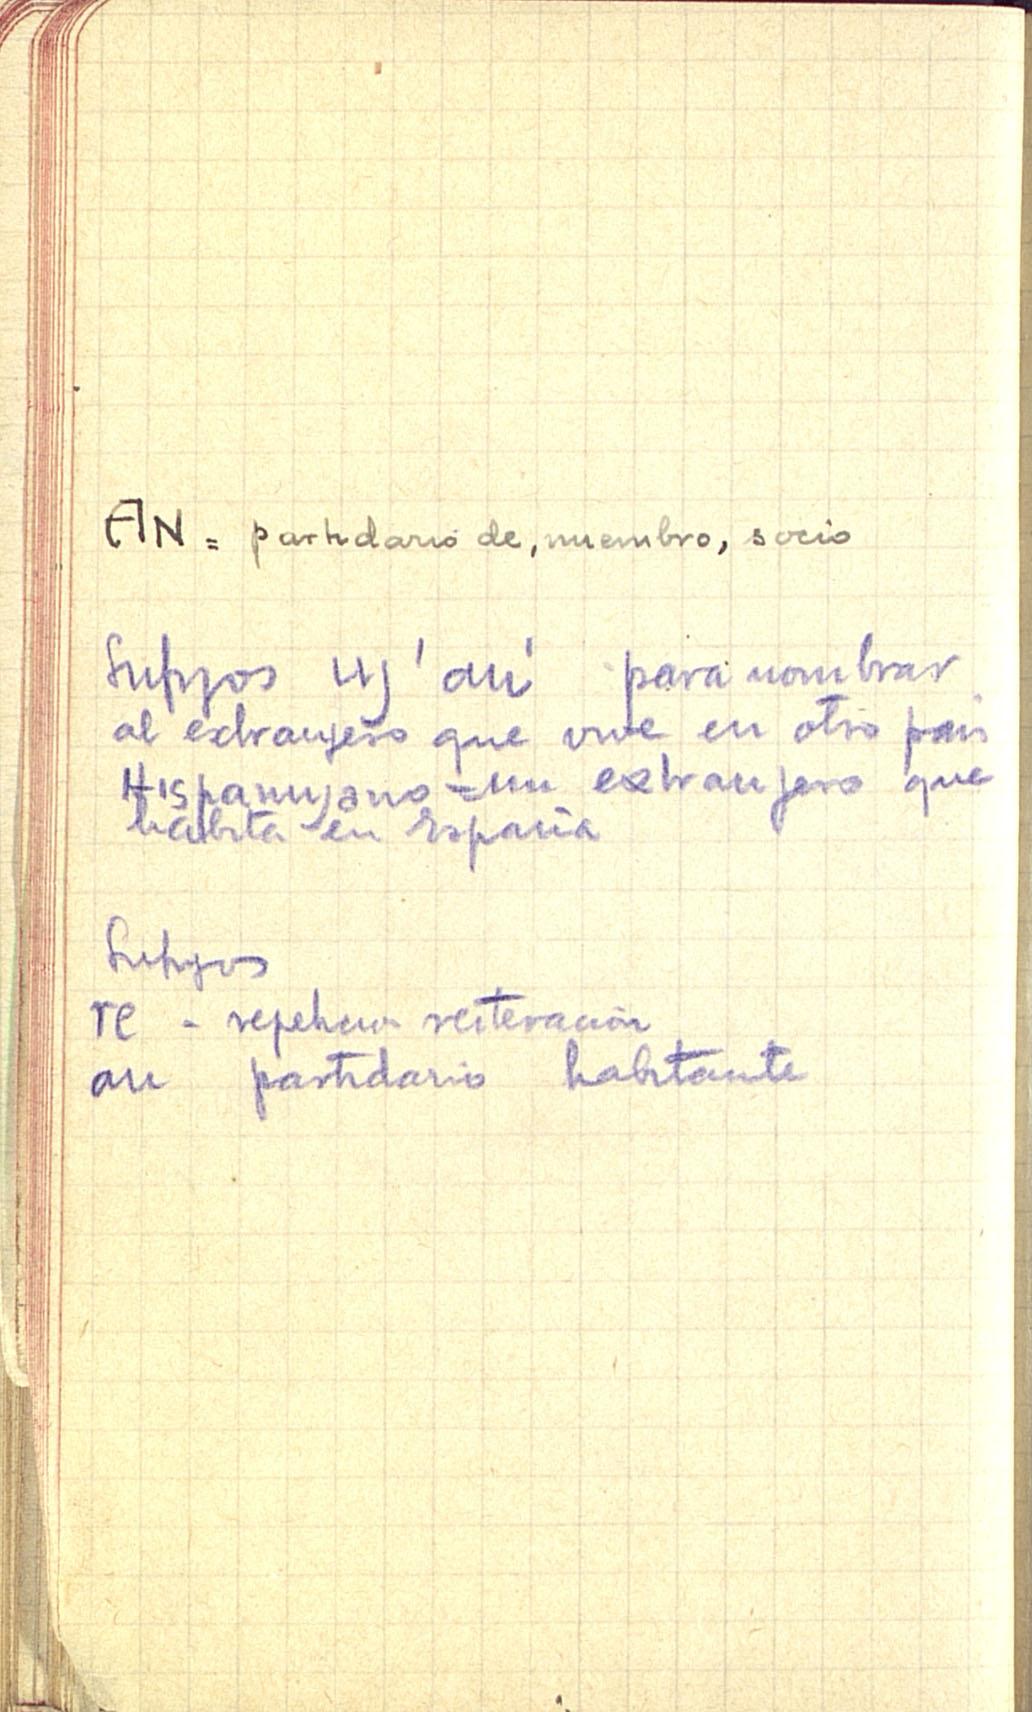 AN = partidario de, miembro, socio
Sufijos uj 'an' para nombrar
al extranjero que vive en otro pais
Hispanujano = un extranjero que
habita en España
Sufijos
re - repeticion reiteración
an partidario habitante